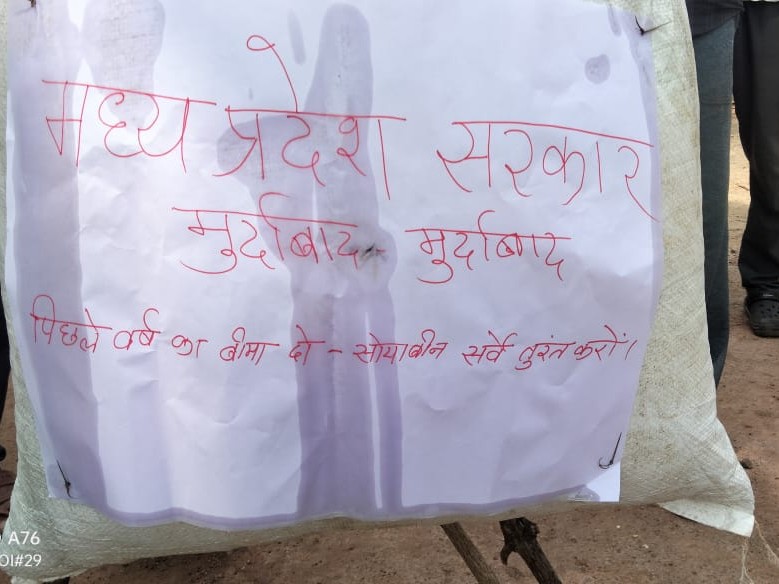 मध्य प्रदेश सरकार
मुर्दाबाद - मुर्दाबाद
पिछले वर्ष का बीमा दो - सोयाबीन सर्वे तुरंत करों।
A76
01#29